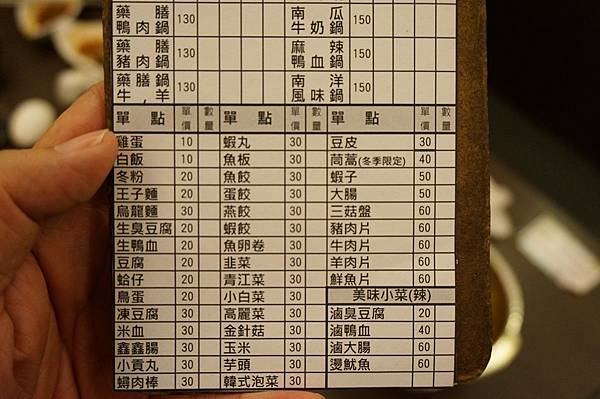 藥膳鴨肉鍋 130 南瓜牛奶鍋 150
藥膳豬肉鍋 130 麻辣鴨血鍋 150
藥膳鍋牛,羊 130 南洋風味鍋 150
單點 單價 數量 單點 單價 數量 單點 單價 數量
雞蛋 10 蝦丸 30 豆皮 30
白飯 10 魚板 30 茼蒿(冬季限定) 40
冬粉 20 魚餃 30 蝦子 50
王子麵 20 蛋餃 30 大腸 50
烏龍麵 30 燕餃 30 三菇盤 60
生臭豆腐 20 蝦餃 30 豬肉片 60
生鴨血 20 魚卵卷 30 牛肉片 60
豆腐 20 韭菜 30 羊肉片 60
蛤仔 20 青江菜 30 鮮魚片 60
鳥蛋 20 小白菜 30 美味小菜(辣)
凍豆腐 30 高麗菜 30 滷臭豆腐 20
米血 30 金針菇 30 滷鴨血 40
鑫鑫腸 30 玉米 30 滷大腸 60
小貢丸 30 芋頭 30 燙魷魚 60
蟳肉棒 30 韓式泡菜 30